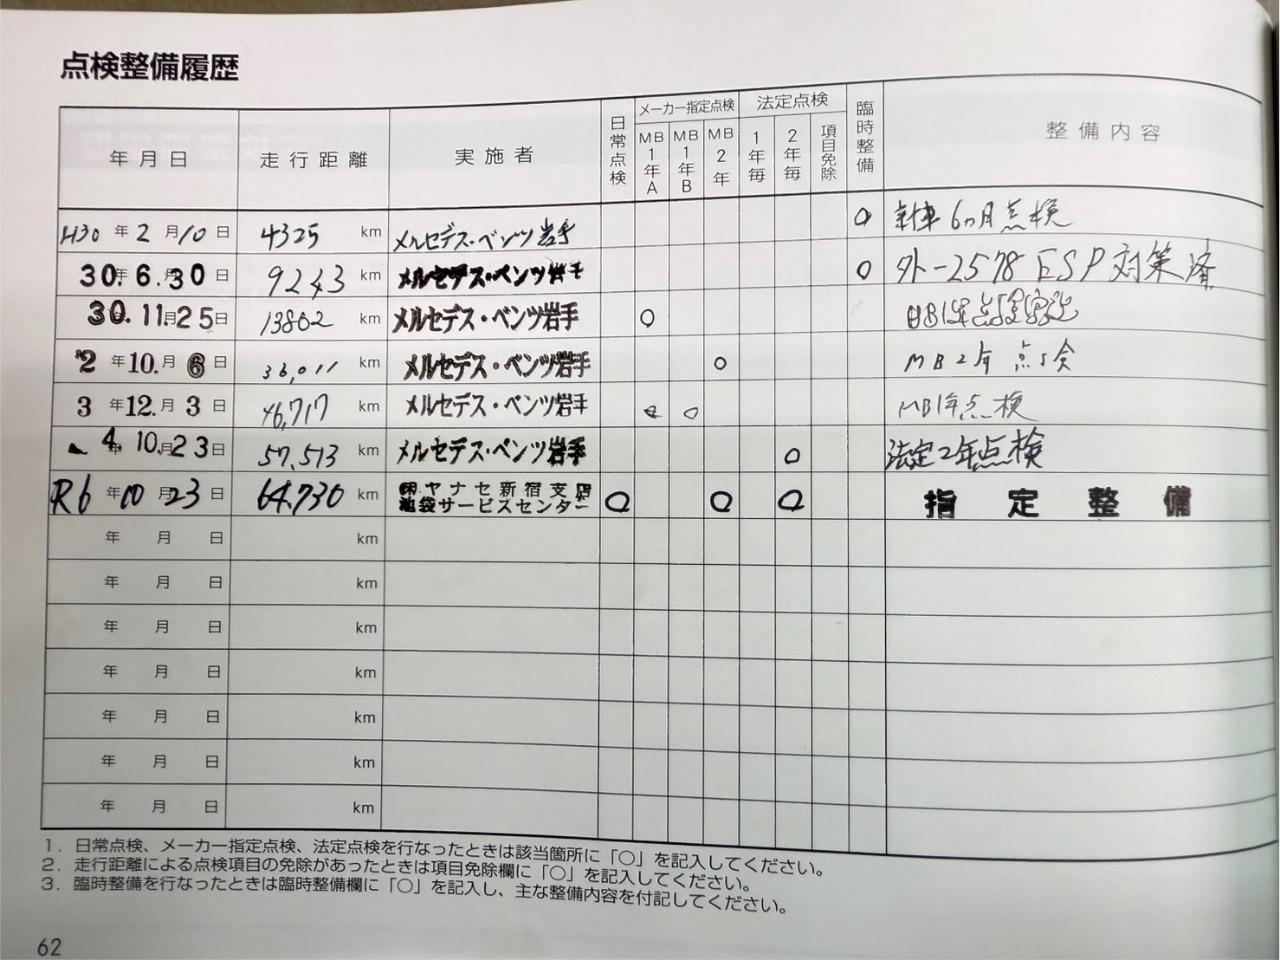 点検整備履歴
年月日 走行距離 実施者 日常点検 メーカー指定点検 MB1年A MB1年B MB2年 法定点検 1年毎 2年毎 項目免除 臨時整備 整備内容
H30年2月10日 4325 km メルセデス・ベンツ岩手 ○ 新車6ヵ月点検
30年6月30日 9243 km メルセデス・ベンツ岩手 ○ 外-2578 ESP対策済
30.11月25日 13802 km メルセデス・ベンツ岩手 ○
2年10月6日 36,011 km メルセデス・ベンツ岩手 ○ MB2年点検
3年12月3日 46,717 km メルセデス・ベンツ岩手 ○ MB1年点検
4年10月23日 57,513 km メルセデス・ベンツ岩手 ○ 法定2年点検
R6年10月23日 64,730 km ㈱ヤナセ新宿支店 ○ ○ ○ 指定整備
池袋サービスセンター
年 月 日 km
年 月 日 km
年 月 日 km
年 月 日 km
年 月 日 km
年 月 日 km
年 月 日 km
1. 日常点検、メーカー指定点検、法定点検を行なったときは該当箇所に「○」を記入してください。
2. 走行距離による点検項目の免除があったときは項目免除欄に「○」を記入してください。
3. 臨時整備を行なったときは臨時整備欄に「○」を記入し、主な整備内容を付記してください。
62